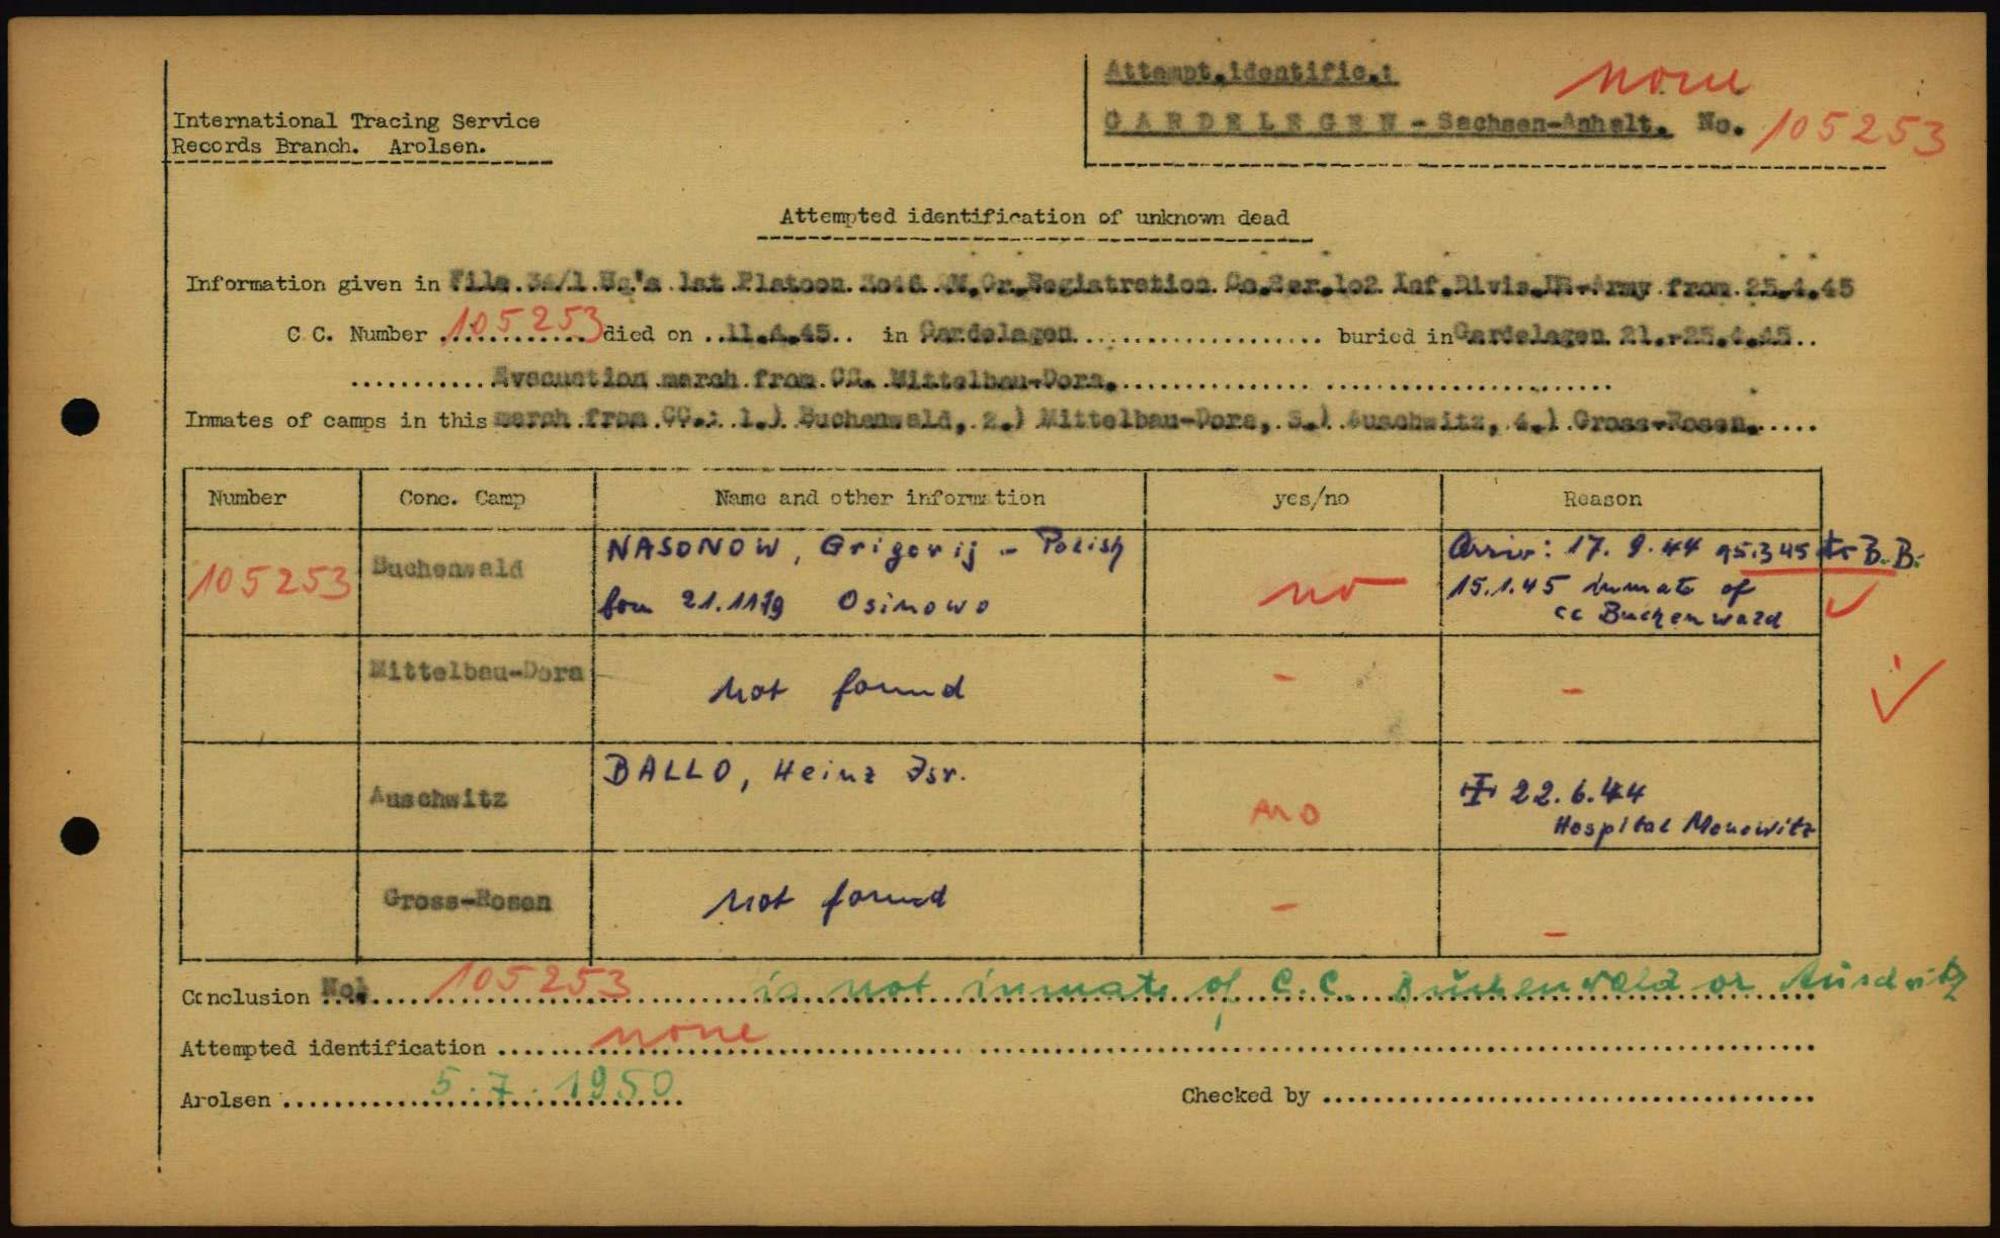 Attempt.identific.: none
International Tracing Service
GARDELEGEN - Sachsen-Anhalt. No. 105253
Records Branch. Arolsen.
Attempted identification of unknown dead
Information given in File 3A/1 Hq's 1st Platoon 3046 QM.Gr.Registration Co. Ser.1o2 Inf.Divis.US-Army from 25.4.45
C.C. Number 105253 died on 11.4.45 in Gardelegen buried in Gardelegen 21.-25.4.45
Evacuation march from CC. Mittelbau-Dora.
Inmates of camps in this march from CC.: 1.) Buchenwald, 2.) Mittelbau-Dora, 3.) Auschwitz, 4.) Gross-Rosen.
Number Conc. Camp Name and other information yes/no Reason
105253 Buchenwald NASONOW, Grigorij - Polish no Arriv: 17. 9.44 to B.B.
born Osinowo 15.1.45 inmate of
cc Buchenwald
Mittelbau-Dora not found - -
Auschwitz BALLO, Heinz Isr. no 22.6.44
Hospital Monowitz
Gross-Rosen not found - -
Conclusion No. 105253 is not inmate of C.C. Buchenwald or Auschwitz
Attempted identification none
Arolsen 5.7.1950 Checked by